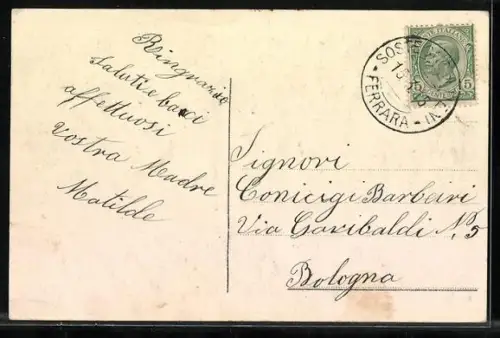 Ringrazio
Saluti e baci
affettuosi
Vostra Madre
Matilde
POSTE ITALIANE
5
FERRARA
Signori
Conicigi Barbeiri
Via Garibaldi N. 5
Bologna